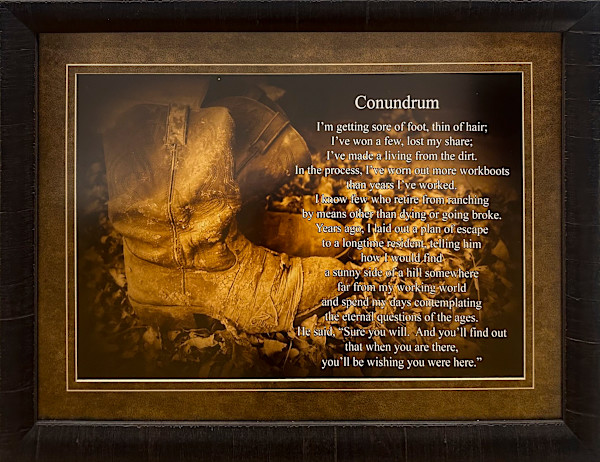 Conundrum
I'm getting sore of foot, thin of hair;
I've won a few, lost my share;
I've made a living from the dirt.
In the process, I've worn out more workboots
than years I've worked.
I know few who retire from ranching
by means other than dying or going broke.
Years ago, I laid out a plan of escape
to a longtime resident, telling him
how I would find
a sunny side of a hill somewhere
far from my working world
and spend my days contemplating
the eternal questions of the ages.
He said, “Sure you will.  And you'll find out
that when you are there,
you'll be wishing you were here.”